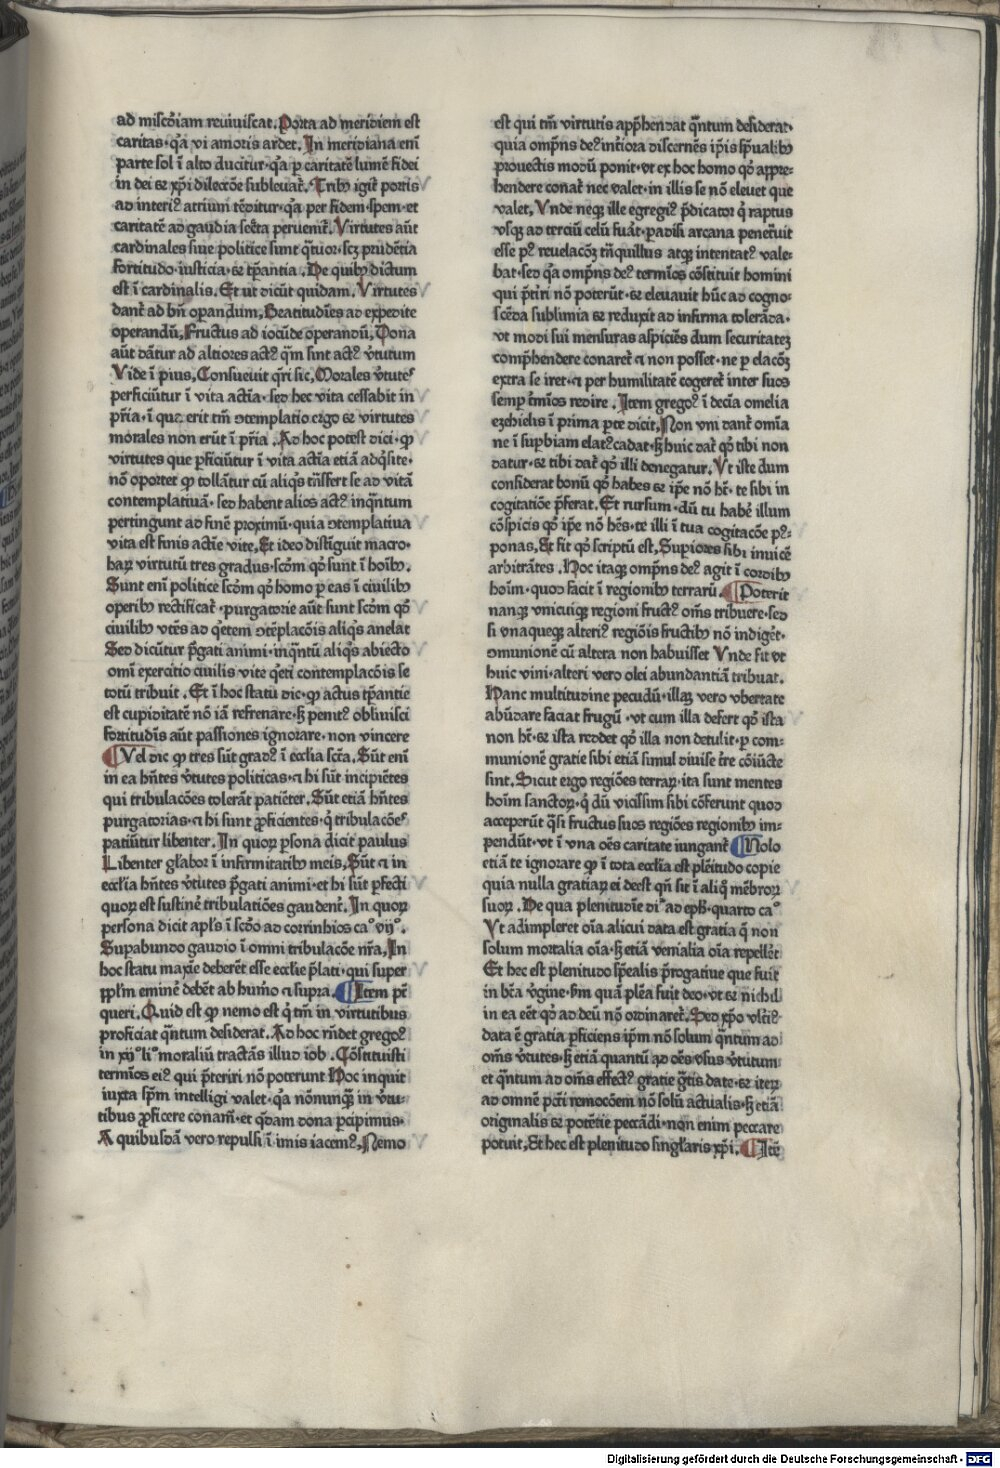 ad misc̄diam reuiuiscat. Porta ad meridiem est
caritas· q̄a vi amoris ardet. In meridiana em̄
parte sol ī alto ducitur· q̄a p caritatē lumē fidei
in dei ⁊ xp̄i dilecc̄oe subleuat᷑. Tribꝰ igit᷑ portis
ad interiꝰ atrium tēditur· q̄a per fidem· spem· et
caritatē ad gaudia sc̄ta peruenit᷑. Virtutes aūt
cardinales siue politice sunt q̄tuor· scꝫ prudētia
fortitudo· iusticia· ⁊ tp̄antia. De quibꝰ dictum
est ī cardinalis. Et ut dicūt quidam. Virtutes
dant᷑ ad bn̄ operandum, Beatitudīes ad expedite
operandū, Fructus ad iocūde operandū, Dona
aūt dātur ad altiores actꝰ q̄m sunt actꝰ v̄tutum
Vide ī pius, Consueuit q̄ri sic, Morales v̄tutes
perficiūtur ī vita actīa· sed hec vita cessabit in
pr̄ia· ī qua erit tm̄ ↄtemplatio ergo ⁊ virtutes
morales non erūt ī pr̄ia. Ad hoc potest dici· ꝙ
virtutes que ꝑficiūtur ī vita actīa etiā adq̄site·
nō oportet ꝙ tollātur cū aliq̄s trāsfert se ad vitā
contemplatiuā· sed habent alios actꝰ inq̄ntum
pertingunt ad finē proximū· quia ↄtemplatiua
vita est finis actīe vite, Et ideo distīguit macro-
baꝝ virtutū tres gradus· scd̄m qd̄ sunt ī hoībꝰ.
Sunt eni politice scd̄m qd̄ homo ꝑ eas ī ciuilibꝰ
operibꝰ rectificat᷑· purgatorie aūt sunt scd̄m qd̄
ciuilibꝰ vtēs ad q̄etem ↄtēplac̄ois aliq̄s anelat
Sed dicūtur p̄gati animi· inq̄ntū aliq̄s abiecto
omī exercitio ciuilis vite q̄eti contemplac̄ois se
totū tribuit. Et ī hoc statu dic· ꝙ actus tp̄antie
est cupiditatē nō iā refrenare· sꝫ penitꝰ obliuisci
fortitudīs aūt passiones ignorare· non vincere
Vel dic ꝙ tres sūt gradꝰ ī eccl̄ia sc̄ta. Sūt eni
in ea hn̄tes v̄tutes politicas· ⁊ hi sūt incipiētes
qui tribulac̄oes tolerāt patiēter. Sūt etiā hn̄tes
purgatorias· ⁊ hi sunt ꝓficientes· q̄ tribulac̄oes
patiūtur libenter. In quoꝝ ꝑsona dicit paulus
Libenter gl̄abor ī infirmitatibꝰ meis, Sūt ⁊ in
eccl̄ia hn̄tes v̄tutes p̄gati animi· et hi sūt ꝑfecti
quoꝝ est sustinē tribulatiōes gaudent᷑. In quoꝝ
persona dicit apl̄s ī scd̄o ad corrinhios caº vijº.
Supabundo gaudio ī omni tribulac̄oe nr̄a, In
hoc statu maxie deberēt esse eccl̄ie p̄lati· qui super
ppl̄m eminē debēt ab huīo ⁊ supra. Item pt̄
queri. Quid est ꝙ nemo est q̄ tm̄ in virtutibus
proficiat q̄ntum desiderat. Ad hoc rn̄det gregoꝰ
in xijº liº moraliū tractās illud iob. Cōstituisti
termīos eiꝰ qui p̄teriri nō poterunt Hoc inquit
iuxta sp̄m intelligi valet· q̄a nōnunqꝫ in v̄tu-
tibus ꝓficere conam̄· et q̄dam dona ꝑcipimus·
A quibusdā vero repulsi ī imis iacemꝰ, Nemo
est qui tm̄ virtutis app̄hendat q̄ntum desiderat·
quia omp̄ns deꝰ īteriora discernēs ip̄is sp̄ualibꝰ
prouectis modū ponit· vt ex hoc homo qd̄ appre-
hendere conat᷑ nec valet· in illis se nō eleuet que
valet, Vnde neqꝫ ille egregiꝰ p̄dicator q̄ raptus
vsqꝫ ad terciū celū fuāt· ꝑadisi arcana penet᷑uit
esse pꝰ reuelacōꝫ tn̄quillus atqꝫ intentatꝰ vale-
bat· sed q̄a omp̄ns deꝰ termīos cōstituit homini
qui p̄tiri nō poterūt· ⁊ eleuauit hūc ad cogno-
scēda sublimia ⁊ reduxit ad infirma tolerāda·
vt modi sui mensuras aspiciēs dum securitatē
comp̄hendere conaret᷑ ⁊ non posset· ne ꝑ elacōꝫ
extra se iret· ⁊ per humilitatē cogeret᷑ inter suos
semꝑ t᷑mīos redire. Itcm gregoꝰ ī decīa omelia
ezehielis ī prima ꝑte dicit, Non vni dant᷑ omīa
ne ī suꝑbiam elatꝰ cadat· sꝫ huic dat᷑ qd̄ tibi non
datur· ⁊ tibi dat᷑ qd̄ illi denegatur. Vt iste dum
considerat bonū qd̄ habes ⁊ ip̄e nō hꝫ· te sibi in
cogitatiōe p̄ferat. Et rursum· dū tu habē illum
cōspicis qd̄ ip̄e nō hēs· te illi ī tua cogitacōe pꝰ-
ponas, Et fit qd̄ scriptū est, Supiores sibi inuicē
arbitrātes. Hoc itaqꝫ omp̄ns deꝰ agit ī cordibꝰ
hoīm· quod facit ī regionibꝰ terrarū. Poterit
nanqꝫ vnicuiqꝫ regioni fructꝰ om̄s tribuere· sed
si vnaqueqꝫ alteriꝰ regiōis fructibꝰ nō indiget·
ↄmunionē cū altera non habuisset Vnde fit vt
huic vini· alteri vero olei abundantiā tribuat.
Hanc multitudine pecudū· illaqꝫ vero vbertate
abūdare faciat frugū· vt cum illa defert qd̄ ista
non hꝫ· ⁊ ista reddet qd̄ illa non detulit· ꝑ com-
munionē gratie sibi etiā simul diuise t᷑re cōiūcte
sint. Sicut ergo regiōes terraꝝ· ita sunt mentes
hoīm sanctoꝝ· q̄ dū vicissim sibi cōferunt quod
acceperūt q̄si fructus suos regiōes regionibꝰ im-
pendūt· vt ī vna oēs caritate iungant᷑ Nolo
etiā te ignorare ꝙ ī tota eccl̄ia est plēitudo copie
quia nulla gratiaꝝ ei deest qn̄ sit ī aliq̄ mēbroꝝ
suoꝝ. De qua plenitudīe diꝰ ad eph̄· quarto caº
Vt adimpleret oīa alicui data est gratia q̄ non
solum mortalia oīa· sꝫ etiā venialia oīa repellēt
Et hec est plenitudo sp̄ealis p̄rogatiue que fuit
in bt̄a v̄gine· scd̄m quā plēa fuit deo· vt ⁊ nichil
in ea eēt qd̄ ad deū nō ordinaret᷑. Sed xp̄o vltīꝰ
data ē gratia ꝑficiens ip̄m nō solum q̄ntum ad
om̄s v̄tutes· sꝫ etiā quantū ad oēs vsus v̄tutum
et q̄ntum ad om̄s effectꝰ gratie gr̄tis date· ⁊ iteꝝ
ad omnē pcc̄i remocōem nō solū actualis· sꝫ etiā
originalis ⁊ potētie peccādi· non enim peccare
potuit, Et hec est plenitudo singl̄aris xp̄i. Itē
Digitalisierung gefördert durch die Deutsche Forschungsgemeinschaft - DFG